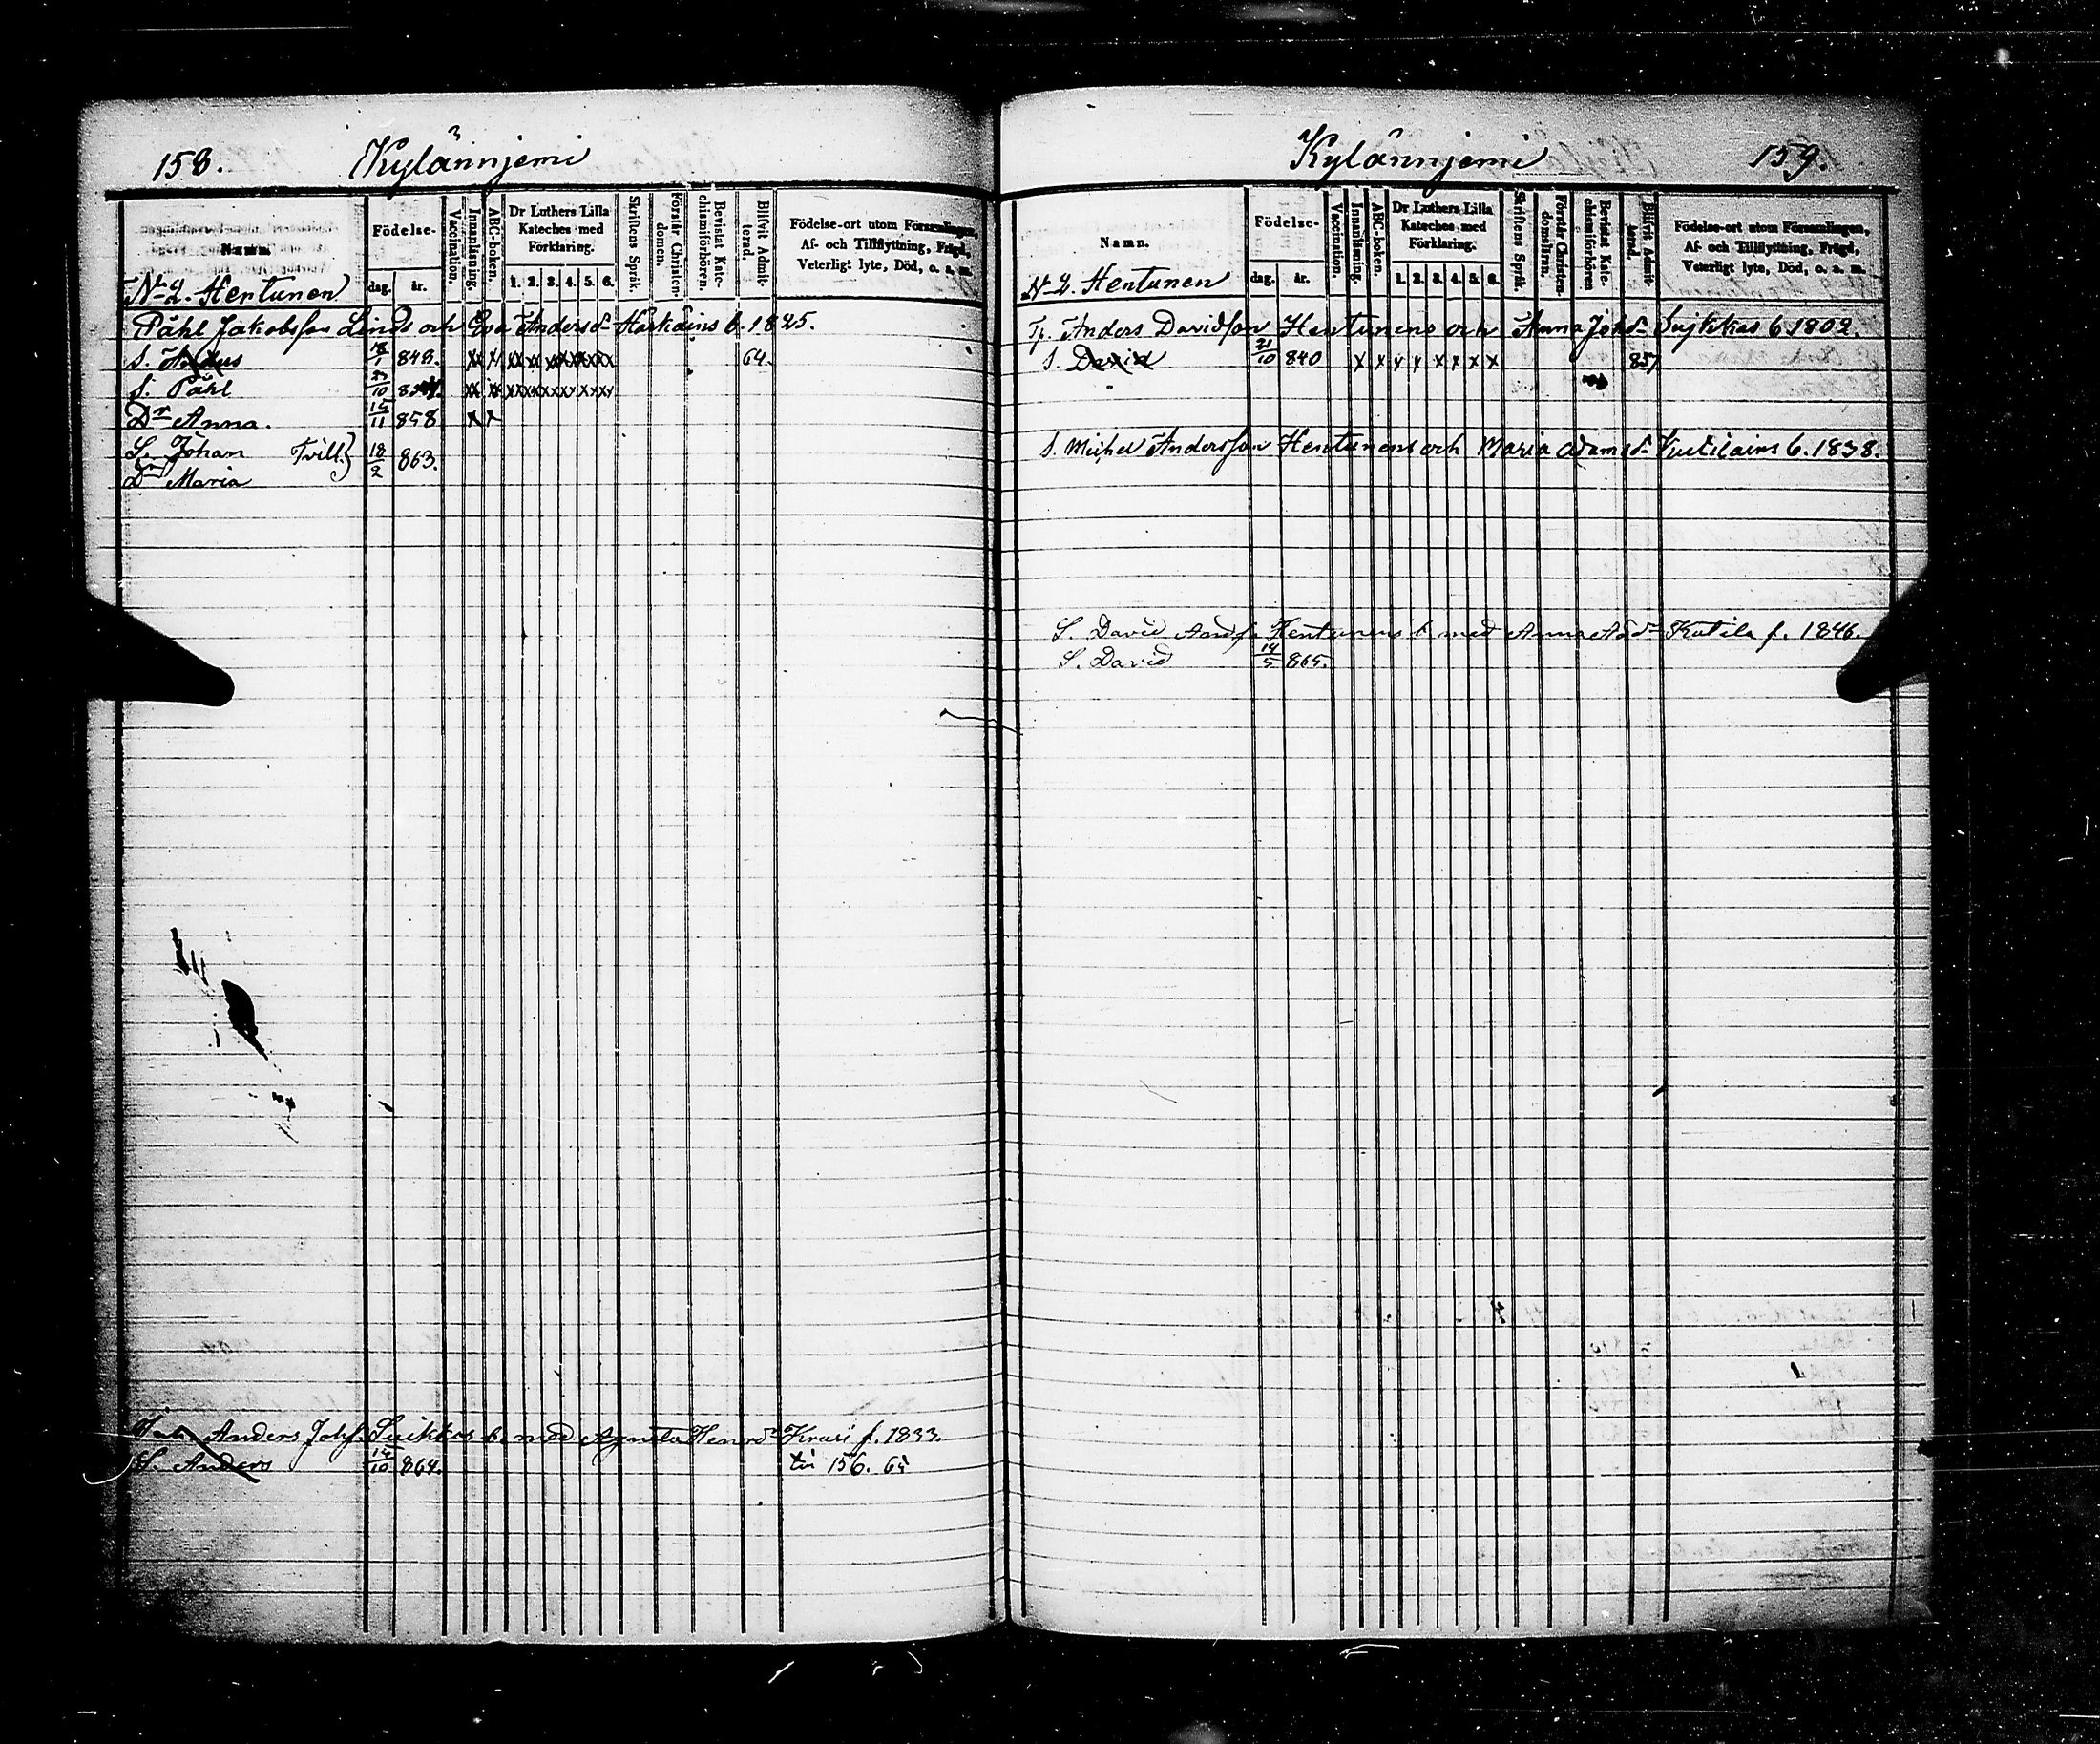 158.
Kylännjemi
Namn.
Födelse-
dag.
år.
Vaccination.
Innanläsning.
ABC-boken.
Dr Luthers Lilla
Kateches med
Förklaring.
1. 2. 3. 4. 5. 6.
Skriftens Språk.
Förstår Christen-
domen.
Bevistat Kate-
chismiförhören.
Blifvit Admit-
terad.
Födelse-ort utom Församlingen,
Af- och Tillflyttning, Frägd,
Veterligt lyte, Död, o. s. m.
N-2. Hentunen
Påhl Jakobsson Linds och Eva Andersd- b. 1825.
S. 18/1 848. xx x xx xx xx xx xx xx 64.
S. Påhl /10 xx xx xx xx xx xx xx xx
Dr Anna. 15/11 858 x x
S. Johan Tvill.} 18/2 863.
Dr Maria
Anders Johs. Suikkas b. med Agneta Henrd- Krusi f. 1833.
S. Anders 14/10 864. 156. 65
Kylännjemi
159.
Namn.
Födelse-
dag.
år.
Vaccination.
Innanläsning.
ABC-boken.
Dr Luthers Lilla
Kateches med
Förklaring.
1. 2. 3. 4. 5. 6.
Skriftens Språk.
Förstår Christen-
domsläran.
Bevistat Kate-
chismiförhören
Blifvit Admit-
terad.
Födelse-ort utom Församlingen,
Af- och Tillflyttning, Frägd,
Veterligt lyte, Död, o. s. m.
N-2. Hentunen
Anders Davidsson Hentunens och Anna Johd- Sujkkas b. 1802.
S. David 21/10 840 x x x x x x x x 857
S. Michel Andersson Hentunens och Maria Adamsd- Kutilains b. 1838.
S. David Andf. Hentunens b. med Anna Ad- Kutila f. 1846.
S. David 14/5 865.